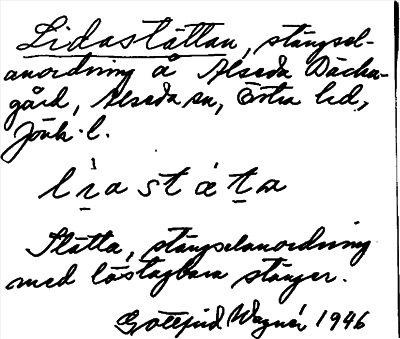 Lidaslättan, stängsel-
anordning å Alseda Bäcka-
gård, Alseda sn, Östra hd,
Jönk. l.
Slätta, stängselanordning
med löstagbara stänger.
Gottfrid Wagnér 1946